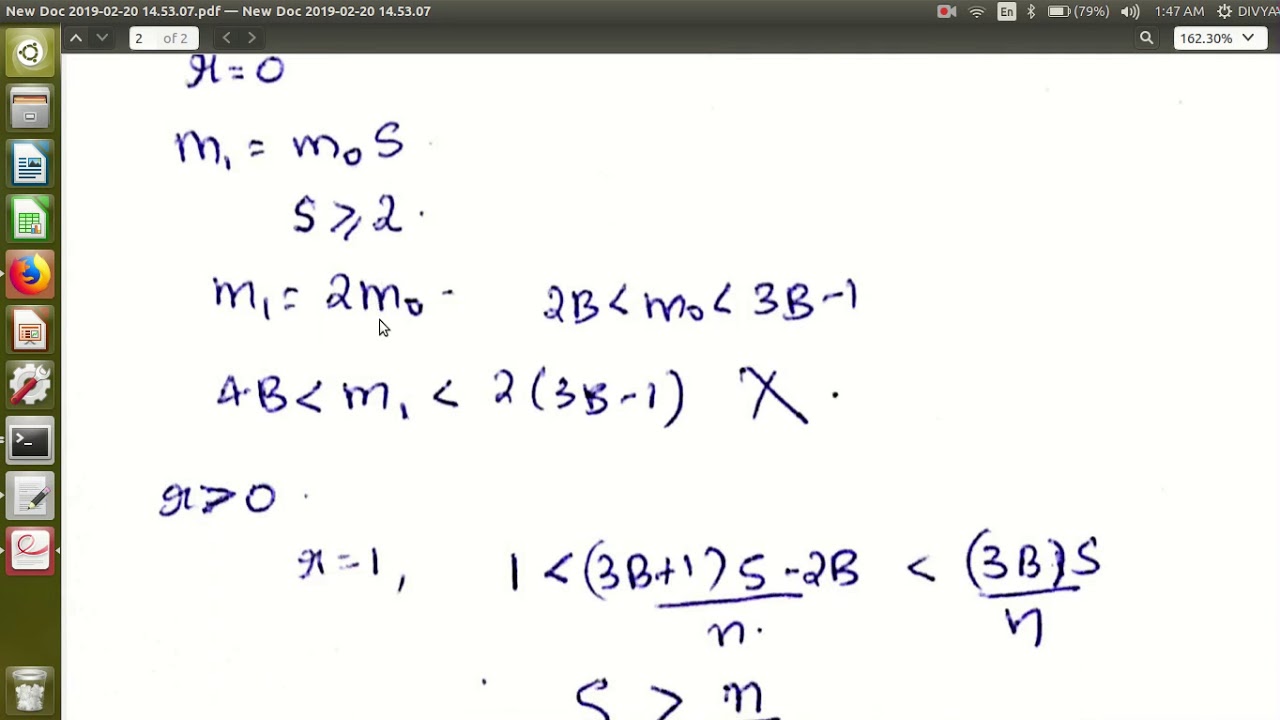 New Doc 2019-02-20 14.53.07.pdf — New Doc 2019-02-20 14.53.07
En (79%) 1:47 AM DIVYA
2 of 2 162.30%
r = 0
m₁ = m₀ S
S ⩾ 2
m₁ = 2m₀ - 2B < m₀ < 3B - 1
4B < m₁ < 2(3B-1) X
r > 0
r = 1, 1 < (3B+1)S - 2B / n < (3B)S / n
S > n